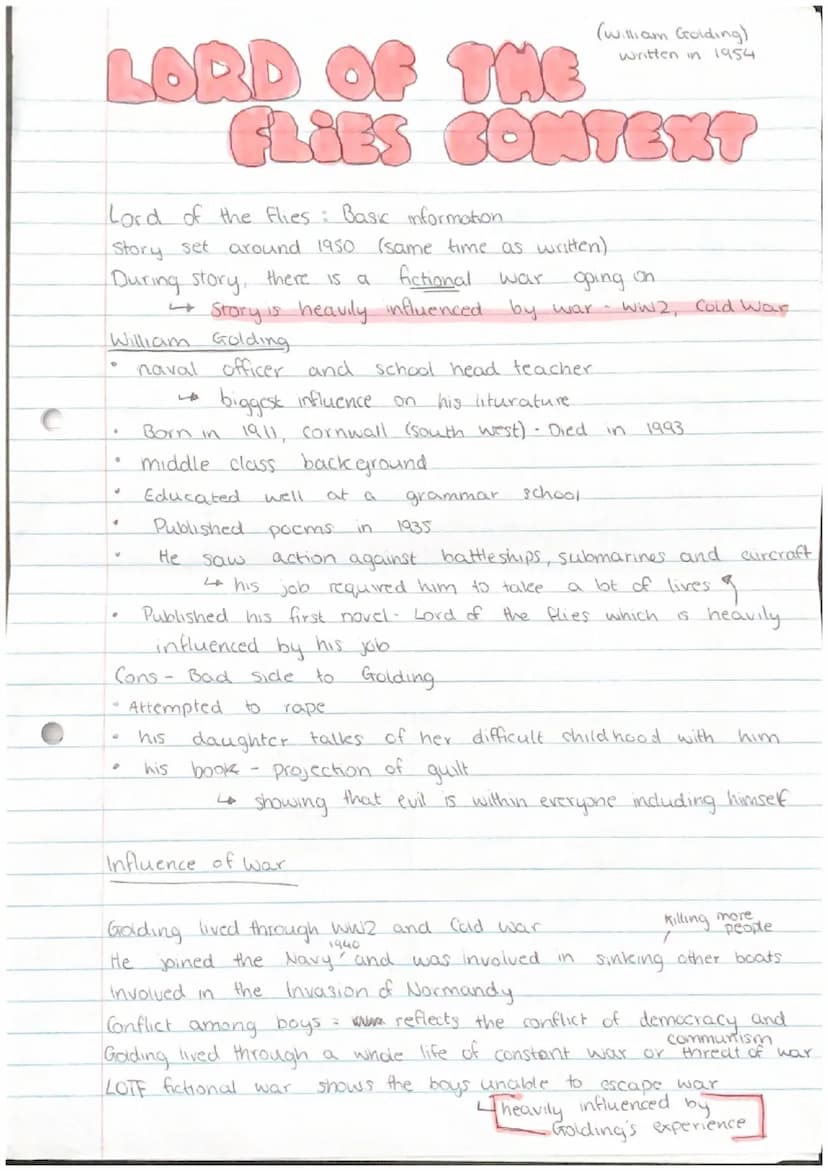 (William Golding)
written in 1954
LORD OF THE
FLiES CONTEXT
Lord of the Flies : Basic information
Story set around 1950 (same time as written)
During story, there is a fictional war going on
↳ Story is heavily influenced by war - WW2, Cold War
William Golding
• naval officer and school head teacher
↳ biggest influence on his liturature
• Born in 1911, Cornwall (south west) - Died in 1993
• middle class background
• Educated well at a grammar school
• Published poems in 1935
• He saw action against battleships, submarines and aircraft
↳ his job required him to take a lot of lives
• Published his first novel - Lord of the flies which is heavily
influenced by his job
Cons - Bad side to Golding
• Attempted to rape
• his daughter talks of her difficult childhood with him
• his book - projection of guilt
↳ showing that evil is within everyone including himself
Influence of War
Golding lived through WW2 and Cold war
killing more
people
1940
He joined the Navy and was involved in sinking other boats
Involved in the Invasion of Normandy
Conflict among boys = reflects the conflict of democracy and
communism
Golding lived through a whole life of constant war or threat of war
LOTF fictional war shows the boys unable to escape war
↳ heavily influenced by
Golding's experience